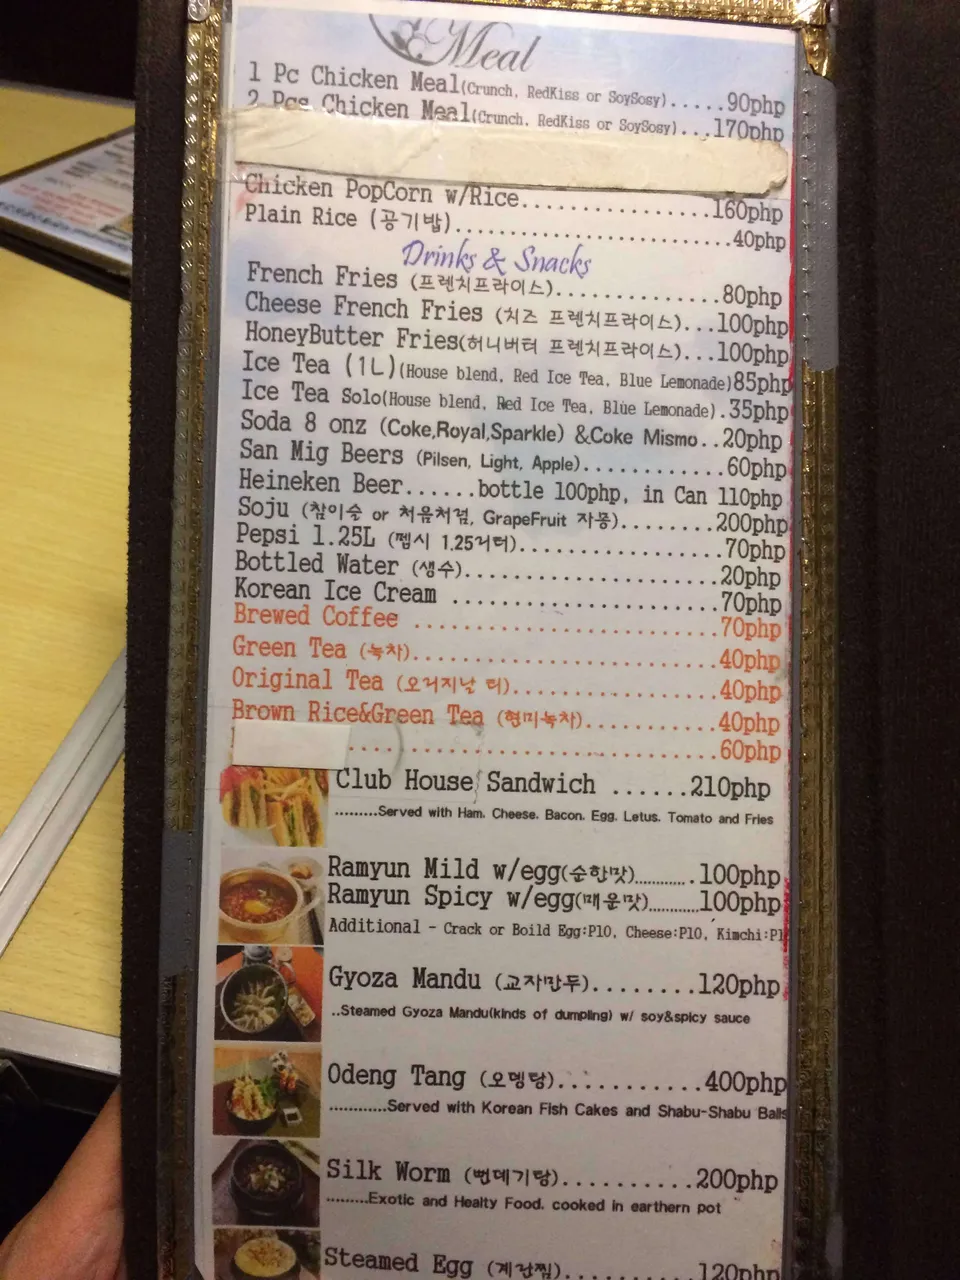 Meal
1 Pc Chicken Meal(Crunch, RedKiss or SoySosy).....90php
2 Pcs Chicken Meal(Crunch, RedKiss or SoySosy)...170php
Chicken PopCorn w/Rice..................160php
Plain Rice (공기밥)..........................40php
Drinks & Snacks
French Fries (프렌치프라이스)...............80php
Cheese French Fries (치즈 프렌치프라이스)...100php
HoneyButter Fries(허니버터 프렌치프라이스)...100php
Ice Tea (1L)(House blend, Red Ice Tea, Blue Lemonade)85php
Ice Tea Solo(House blend, Red Ice Tea, Blue Lemonade).35php
Soda 8 onz (Coke,Royal,Sparkle) &Coke Mismo..20php
San Mig Beers (Pilsen, Light, Apple)............60php
Heineken Beer......bottle 100php, in Can 110php
Soju (참이슬 or 처음처럼, GrapeFruit 자몽)........200php
Pepsi 1.25L (펩시 1.25리터)..................70php
Bottled Water (생수)......................20php
Korean Ice Cream .......................70php
Brewed Coffee ..........................70php
Green Tea (녹차)..........................40php
Original Tea (오리지날 티)..................40php
Brown Rice&Green Tea (현미녹차)...........40php
...............................60php
Club House Sandwich ......210php
.........Served with Ham, Cheese, Bacon, Egg, Letus, Tomato and Fries
Ramyun Mild w/egg(순한맛).............100php
Ramyun Spicy w/egg(매운맛)............100php
Additional - Crack or Boild Egg:P10, Cheese:P10, Kimchi:P1
Gyoza Mandu (교자만두)........120php
..Steamed Gyoza Mandu(kinds of dumpling) w/ soy&spicy sauce
Odeng Tang (오뎅탕)...........400php
............Served with Korean Fish Cakes and Shabu-Shabu Balls
Silk Worm (번데기탕)..........200php
.........Exotic and Healty Food, cooked in earthern pot
Steamed Egg (계란찜)..........120php